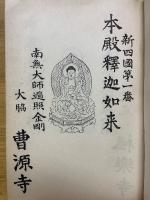 新四國第一番
本殿釋迦如来
南無大師遍照金剛
大脇
曹源寺